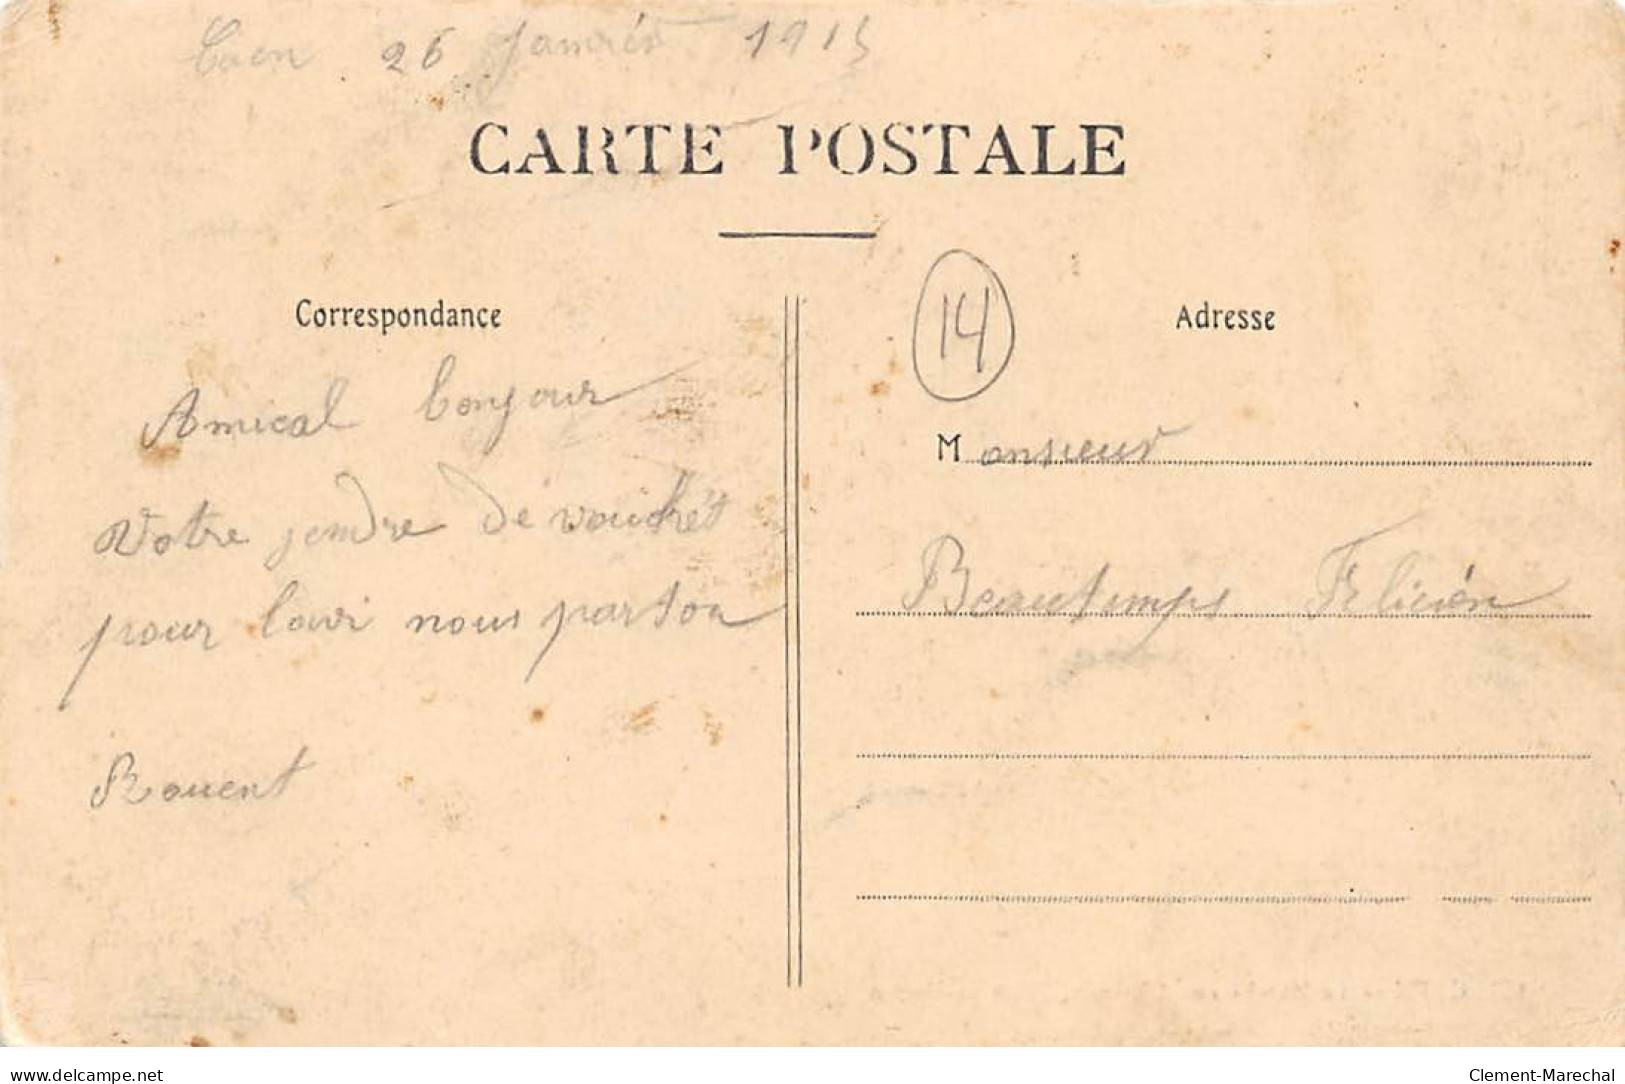 Caen 26 Janviér 1915
CARTE POSTALE
Correspondance
Amical bonjour
Votre jendre
pour nous parton
Rouent
14
Adresse
Monsieur
Beautemps Félicién
www.delcampe.net
Clement-Marechal